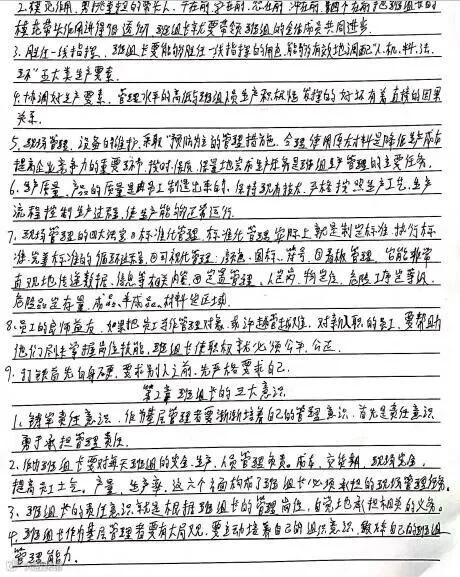 2.模范作用,
模范带头作用讲得很透彻,班组长就要带领班组的全体成员共同进步.
3.胜任一线指挥,班组长要能够胜任一线指挥的角色,能够有效地调配"人、机、料、法、
环"五大类生产要素.
4.协调好生产要素,管理水平的高低与班组成员生产积极性发挥的好坏有着直接的因果
关系.
5、现场管理,设备的维护,采取"预防为主的管理措施,合理使用原大材料是降低生产成本
提高企业竞争力的重要环节,按时、保质、保量地完成生产任务是班组生产管理的主要任务.
6、生产质量,产品的质量是由员工制造出来的,保持现有技术,严格按照生产工艺、生产
流程控制生产过程,使生产能够正常运行.
7、现场管理的四大法宝①标准化管理,标准化管理实际上就是制定标准、执行标
准、完善标准的循环过程②可视化管理:颜色、图标、符号③看板管理,它能非常
直观地传递数据、信息等相关内容④定置管理,人定岗、物定位、危险工序定等级、
危险品定存量、成品、半成品、材料定区域.
8、员工的良师益友,如果把员工当作管理对象,或许越管越难,对新入职的员工,要帮助
他们尽快掌握岗位技能,班组长使职权就必须公平、公正.
9、打铁首先自身硬,要求别人之前,先严格要求自己.
第2章 班组长的三大意识
1、铸牢责任意识,作为基层管理者要渐渐培养自己的管理意识,首先是责任意识
勇于承担管理责任.
2、作为班组长要对每天班组的安全、生产、人员管理负责。成本、交货期、现场安全、
提高员工士气、产量、生产率,这六个方面构成了班组长必须承担的现场管理任务。
3、班组长的责任意识就是根据班组长的管理岗位,自觉地承担相关的义务。
4、班组长作为基层管理者要有大局观,要主动培养自己的组织意识,锻炼自己的班组
管理能力.